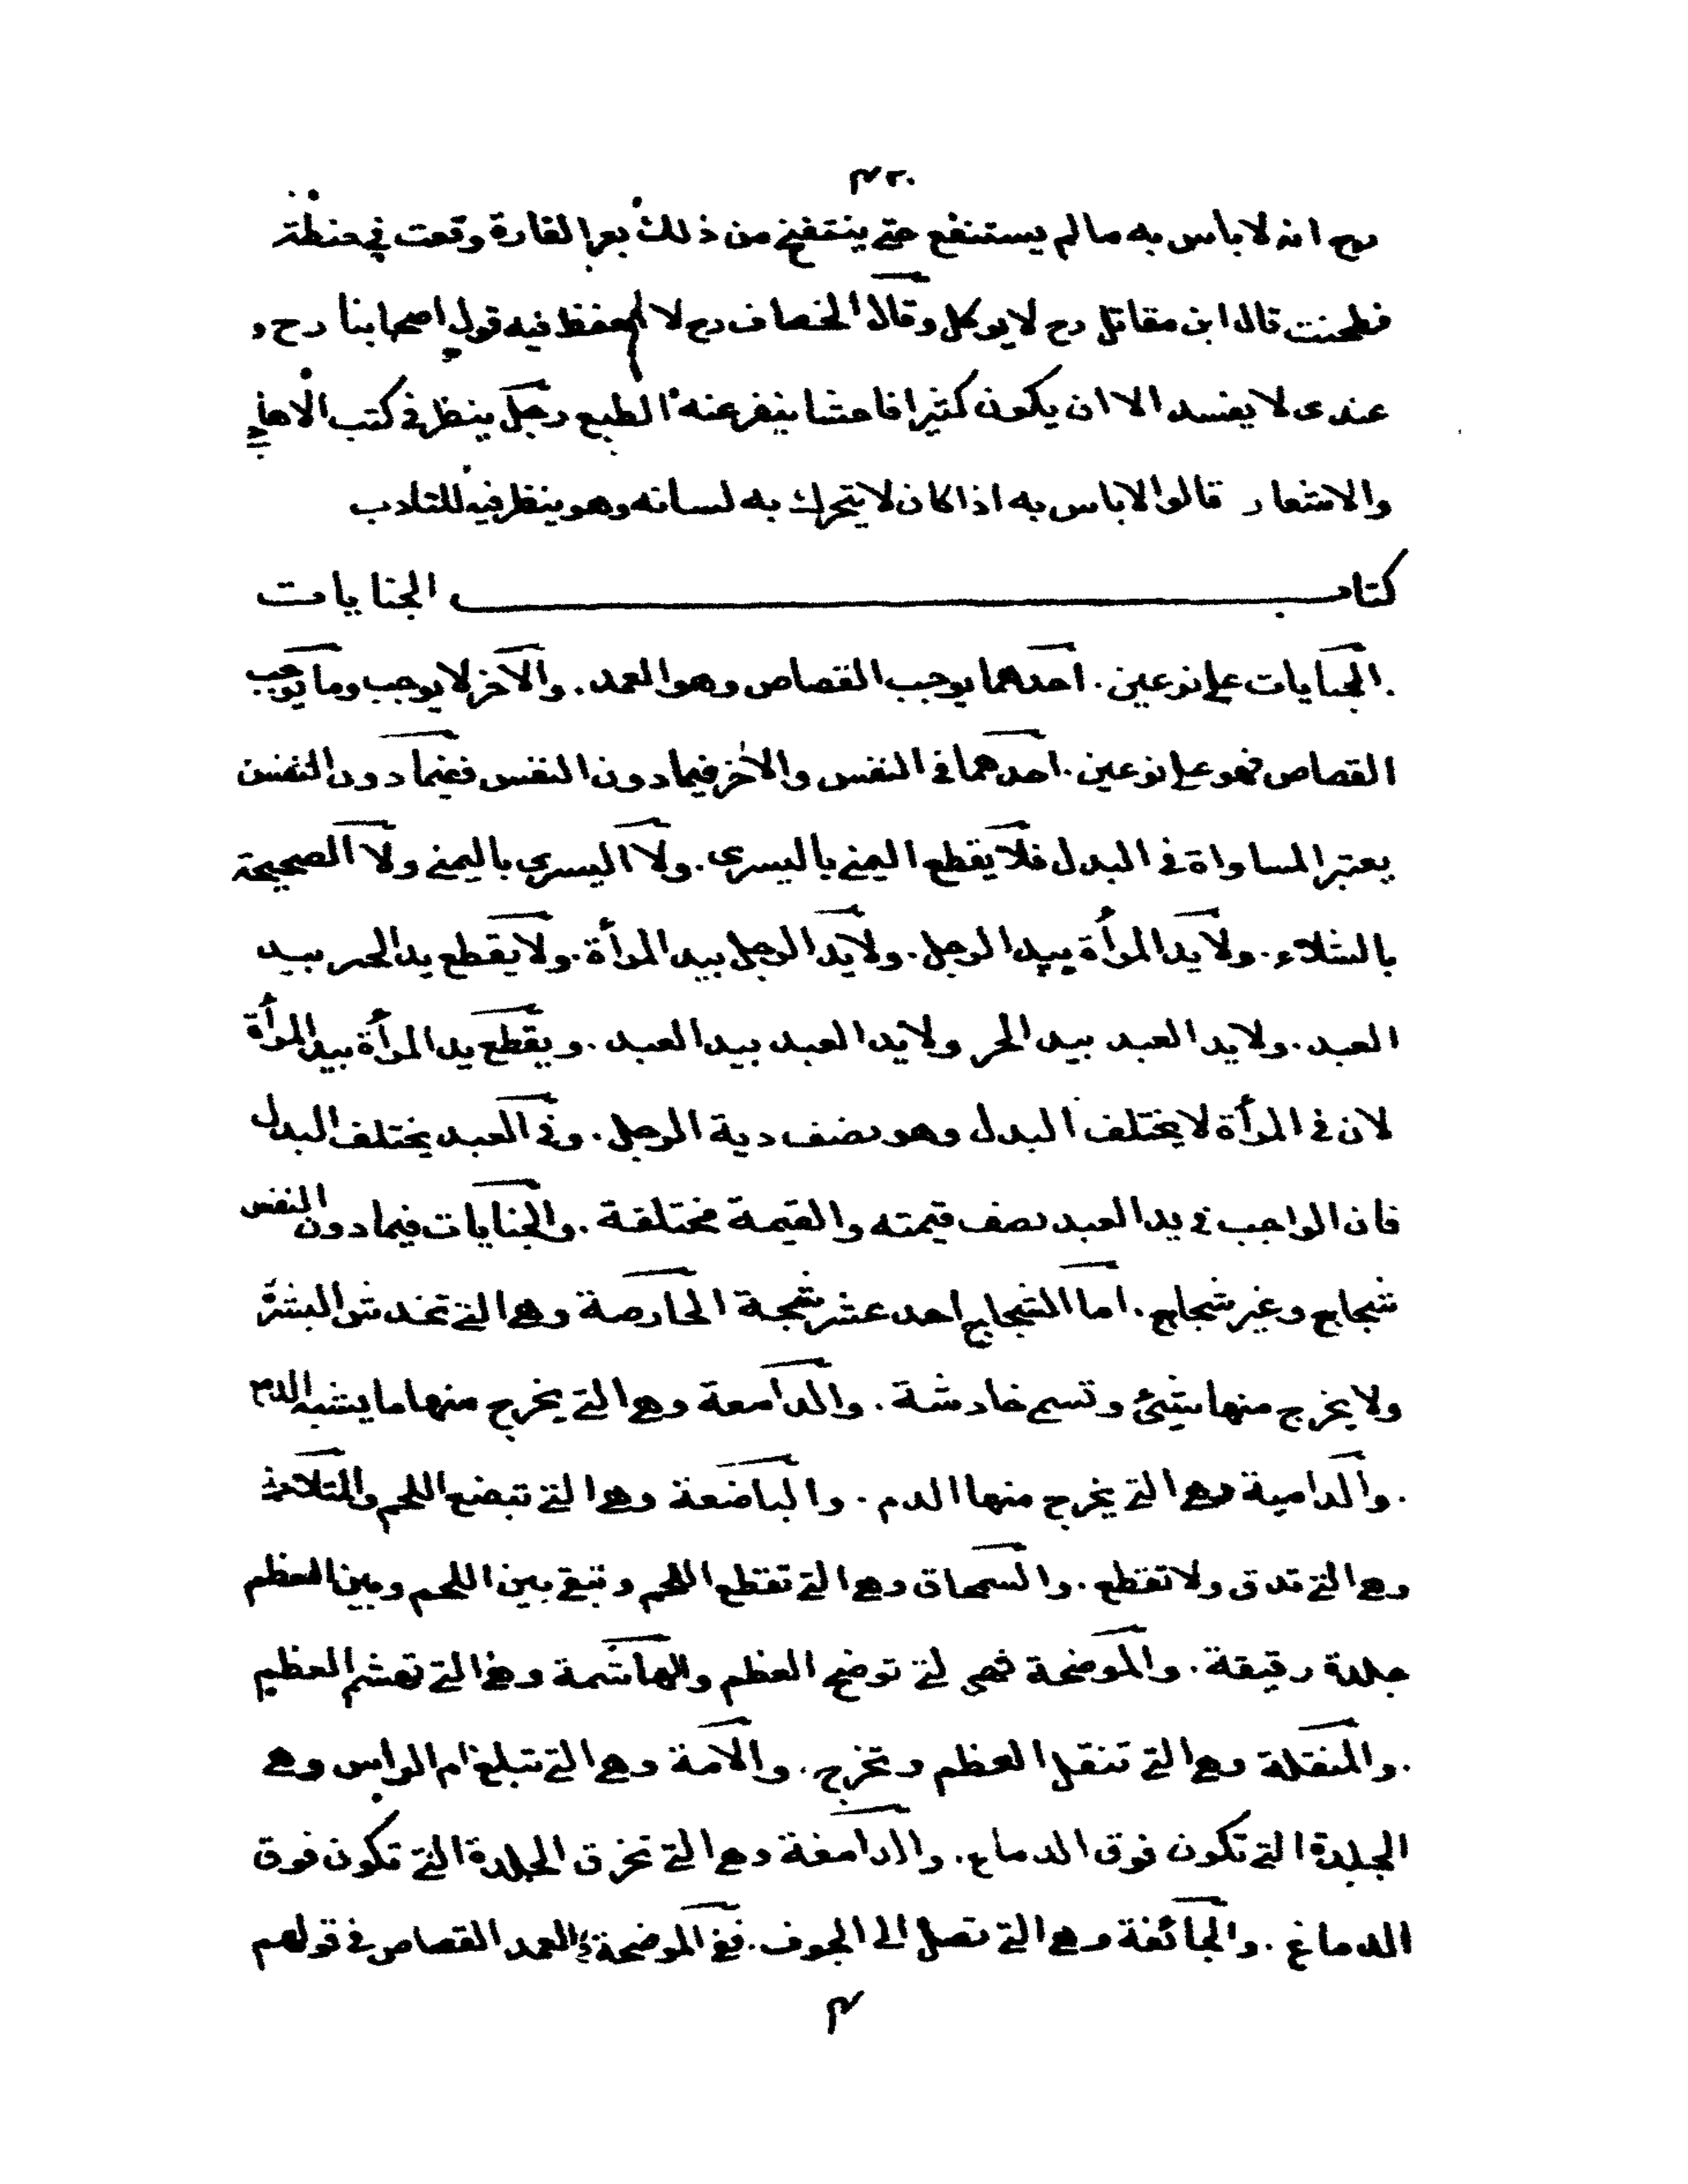 ٤٢٠
رح انه لا باس به ما لم يستنقع حتى ينتفخ من ذلك بعر الفارة وقعت في حنطة
فطحنت قال ابن مقاتل رح لا يوكل وقال الخصاف رح لا احفظ فيه قول اصحابنا رح و
عندى لا يفسد الا ان يكون كثيرا فاحشا ينفر عنه الطبع رجل ينظر في كتب
والاشعار قالوا لا باس به اذا كان لا يتحرك به لسانه وهو ينظر فيه للتادب
كتاب الجنايات
.الجنايات على نوعين. احدهما يوجب القصاص وهو العمد. والآخر لا يوجب وما يوجب
القصاص فهو على نوعين. احدهما في النفس والاخر فيما دون النفس ففيما دون النفس
يعتبر المساواة في البدل فلا يقطع اليمنى باليسرى. ولا اليسرى باليمنى ولا الصحيحة
بالشلاء. ولا يد المرأة بيد الرجل. ولا يد الرجل بيد المرأة. ولا يقطع يد الحر بيد
العبد. ولا يد العبد بيد الحر ولا يد العبد بيد العبد. ويقطع يد المرأة بيد المرأة
لان في المرأة لا يختلف البدل وهو نصف دية الرجل. وفي العبد يختلف البدل
فان الواجب في يد العبد نصف قيمته والقيمة مختلفة. والجنايات فيما دون النفس
شجاج وغير شجاج. اما الشجاج احد عشر شجة الحارصة وهي التي تخدش البشرة
ولا يخرج منها شيئ وتسمى خادشة. والدامعة وهي التي يخرج منها ما يشبه الدم
.والدامية وهي التي يخرج منها الدم. والباضعة وهي التي تبضع اللحم والمتلاحمة
وهي التي تدق ولا تقطع. والسمحاق وهي التي تقطع اللحم وتبقى بين اللحم وبين العظم
جلدة رقيقة. والموضحة فهي لتي توضح العظم والهاشمة وهي التي تهشم العظم
.والمنقلة وهي التي تنقل العظم وتخرج. والآمة وهي التي تبلغ ام الراس وهي
الجلدة التي تكون فوق الدماغ. والدامغة وهي التي تخرق الجلدة التي تكون فوق
الدماغ. والجائفة وهي التي تصل الى الجوف. ففي الموضحة في العمد القصاص في قولهم